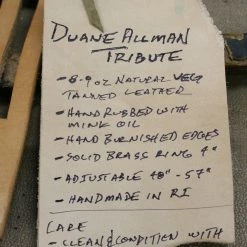 DUANE ALLMAN
TRIBUTE
- 8-9 OZ NATURAL VEG
TANNED LEATHER
- HAND RUBBED WITH
MINK OIL
- HAND BURNISHED EDGES
- SOLID BRASS RING 4"
- ADJUSTABLE 48" - 57"
- HANDMADE IN RI
CARE
- CLEAN & CONDITION WITH